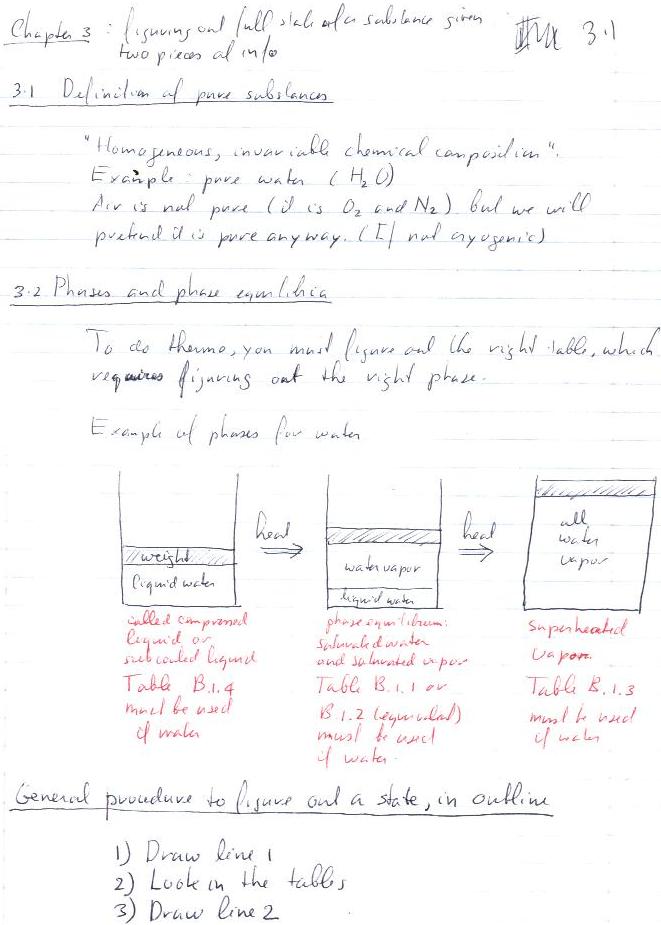 Chapter 3 : figuring out full state of a substance given
two pieces of info
3.1
3.1 Definition of pure substances
"Homogeneous, invariable chemical composition".
Example: pure water (H₂O)
Air is not pure (it is O₂ and N₂) but we will
pretend it is pure anyway. (If not cryogenic)
3.2 Phases and phase equilibria
To do thermo, you must figure out the right table, which
requires figuring out the right phase.
Example of phases for water
weight
liquid water
heat
water vapor
liquid water
heat
all
water
vapor
called compressed
liquid or
subcooled liquid
Table B.1.4
must be used
if water
phase equilibrium:
saturated water
and saturated vapor
Table B.1.1 or
B.1.2 (equivalent)
must be used
if water.
superheated
vapor.
Table B.1.3
must be used
if water
General procedure to figure out a state, in outline
1) Draw line 1
2) Look in the tables
3) Draw line 2